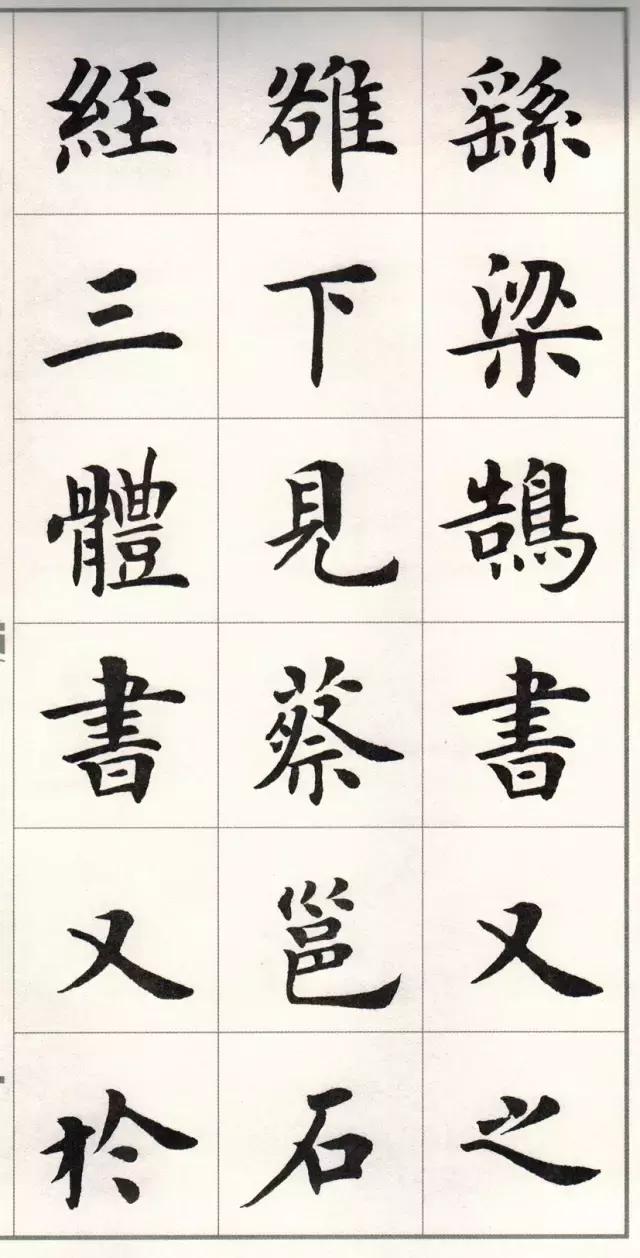 繇梁鵠書又之
雒下見蔡邕石
經三體書又於